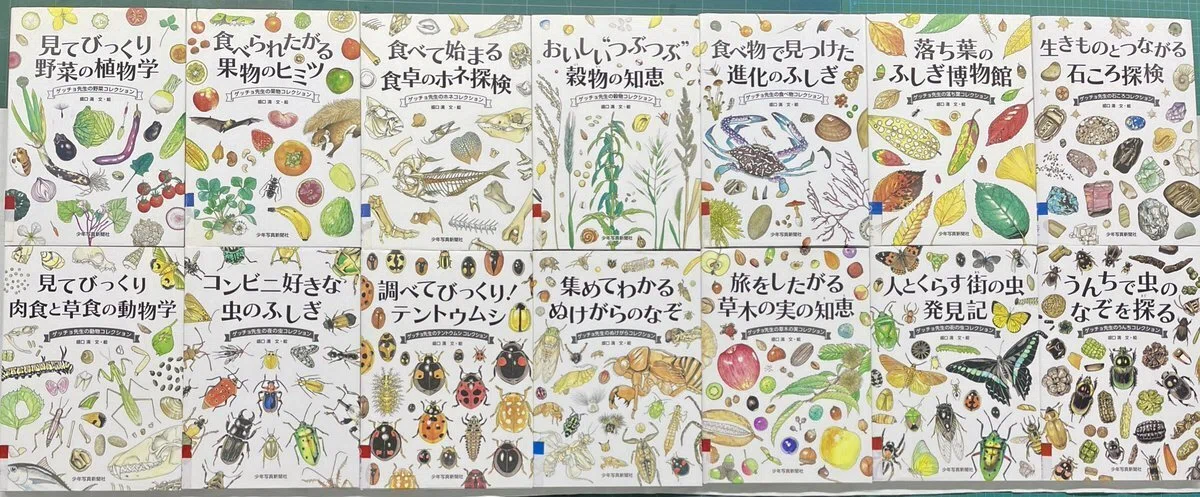 見てびっくり
野菜の植物学
ゲッチョ先生の野菜コレクション
盛口 満 文・絵
食べられたがる
果物のヒミツ
ゲッチョ先生の果物コレクション
盛口 満 文・絵
食べて始まる
食卓のホネ探検
ゲッチョ先生のホネコレクション
盛口 満 文・絵
少年写真新聞社
おいしい“つぶつぶ”
穀物の知恵
ゲッチョ先生の穀物コレクション
盛口 満 文・絵
少年写真新聞社
食べ物で見つけた
進化のふしぎ
ゲッチョ先生の食べ物コレクション
盛口 満 文・絵
少年写真新聞社
落ち葉の
ふしぎ博物館
ゲッチョ先生の落ち葉コレクション
盛口 満 文・絵
少年写真新聞社
生きものとつながる
石ころ探検
ゲッチョ先生の石ころコレクション
盛口 満 文・絵
少年写真新聞社
見てびっくり
肉食と草食の動物学
ゲッチョ先生の動物コレクション
盛口 満 文・絵
少年写真新聞社
コンビニ好きな
虫のふしぎ
ゲッチョ先生の夜の虫コレクション
盛口 満 文・絵
少年写真新聞社
調べてびっくり!
テントウムシ
ゲッチョ先生のテントウムシコレクション
盛口 満 文・絵
少年写真新聞社
集めてわかる
ぬけがらのなぞ
ゲッチョ先生のぬけがらコレクション
盛口 満 文・絵
少年写真新聞社
旅をしたがる
草木の実の知恵
ゲッチョ先生の草木の実コレクション
盛口 満 文・絵
少年写真新聞社
人とくらす街の虫
発見記
ゲッチョ先生の街の虫コレクション
盛口 満 文・絵
少年写真新聞社
うんちで虫の
なぞを探る
ゲッチョ先生のうんちコレクション
盛口 満 文・絵
少年写真新聞社